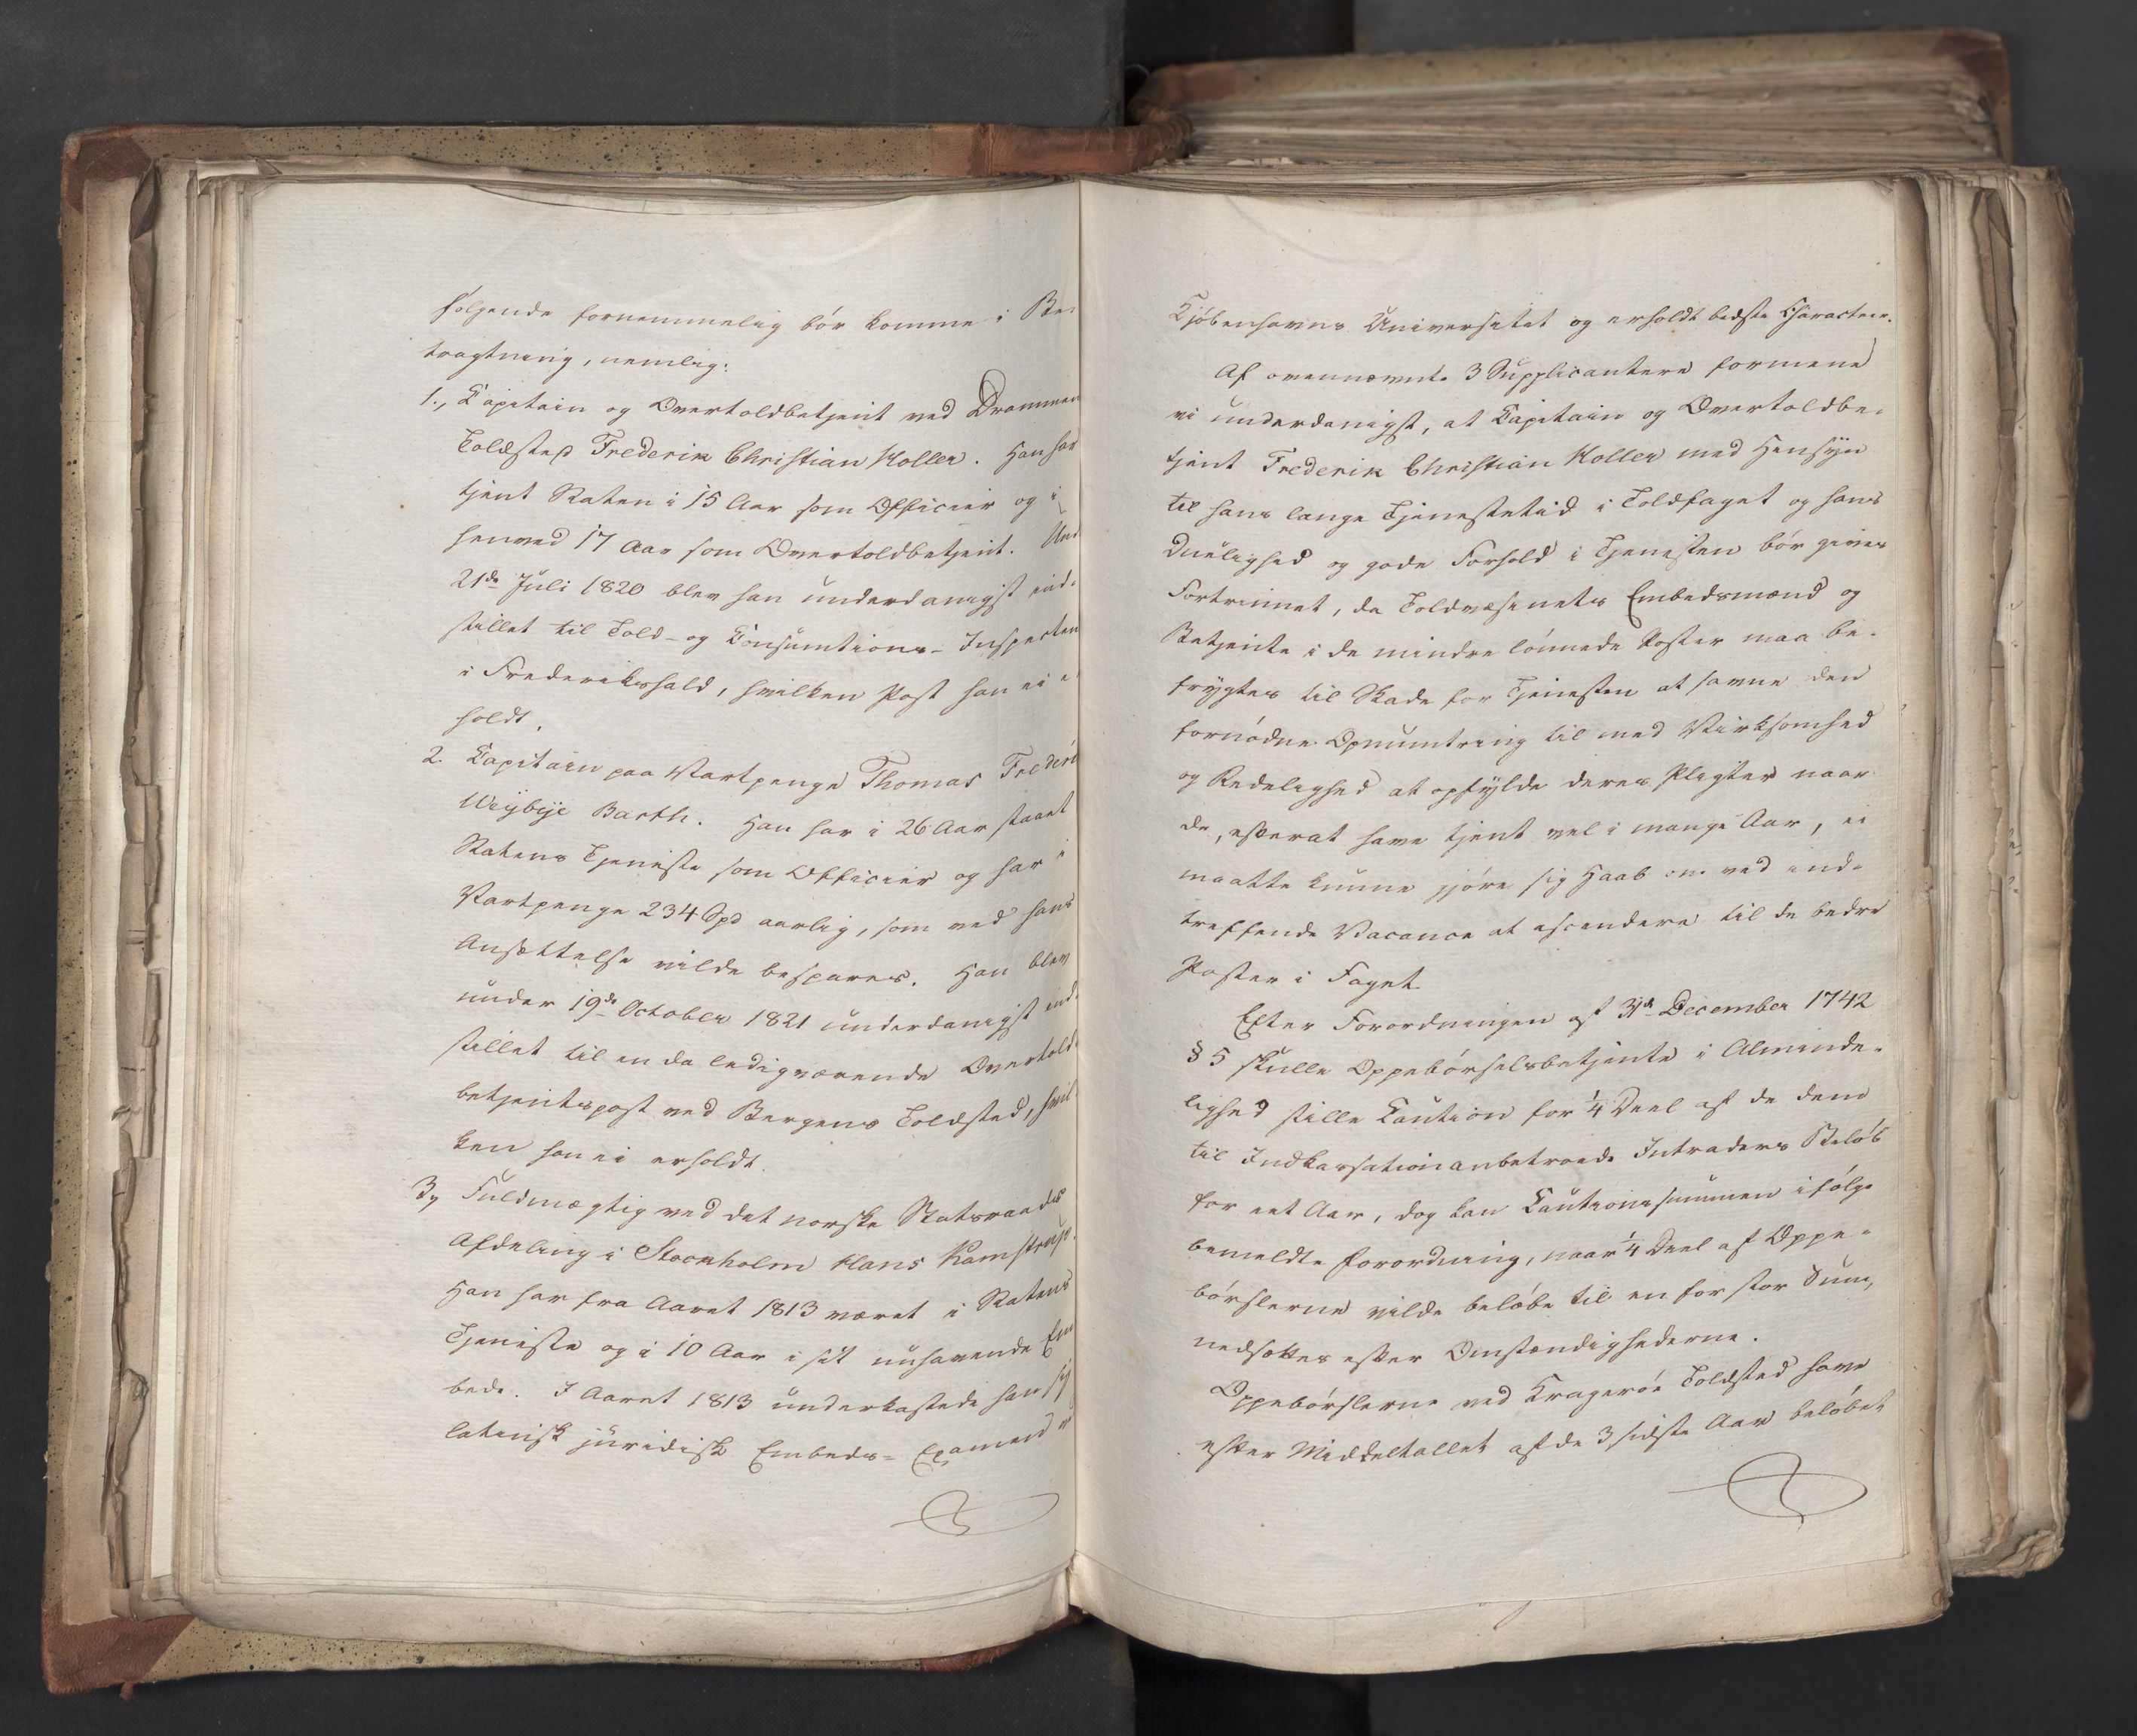 følgende fornemmelig bör komme i Be-
tragtning, nemlig:
1., Capitain og Overtoldbetjent ved Drammens
Toldsted Frederik Christian Holler. Han har
tjent Staten i 15 Aar som Officier og i
henved 17 Aar som Overtoldbetjent. Und
21de Juli 1820 blev han underdanigst ind-
stillet til Told- og Consumtions-Inspecteur
i Frederikshald, hvilken Post han ei er
holdt.
2. Capitain paa Vartpenge Thomas Frederi
Weybye Barth. Han har i 26 Aar staaet
Statens Tjeneste som Officier og har i
Vartpenge 234 Spd aarlig, som ved hans
Ansættelse vilde bespares. Han blev
under 19de October 1821 underdanigst ind-
stillet til en da ledigværende Overtold-
betjentspost ved Bergens Toldsted, hvil-
ken han ei erholdt.
3, Fuldmægtig ved det norske Statsraads
Afdeling i Stockholm Hans Kamstrup.
Han har fra Aaret 1813 været i Statens
Tjeneste og i 10 Aar i sit nuhavende Em
bede. I Aaret 1813 underkastede han sig
latinsk juridisk Embeds-Examen v
Kjöbenhavns Universitet og erholdt bedste Characteer.
Af ovennævnte 3 Supplicantere formene
vi underdanigst, at Capitain og Overtoldbe-
tjent Frederik Christian Holler med Hensyn
til hans lange Tjenestetid i Toldfaget og hans
Duelighed og gode Forhold i Tjenesten bör gives
Fortrinnet, da Toldvæsenets Embedsmænd og
Betjente i de mindre lönnede Poster maa be-
frygtes til Skade for Tjenesten at savne den
fornödne Opmuntring til med Virksomhed
og Redelighed at opfylde deres Pligter naar
de, efterat have tjent vel i mange Aar, ei
maatte kunne gjöre sig Haab om ved ind-
treffende Vacance at ascendere til de bedre
Poster i Faget.
Efter Forordningen af 31de December 1742
§ 5 skulle Oppebörselsbetjente i Alminde-
lighed stille Caution for 1/4 Deel af de dem
til Indkassation anbetroede Intraders Belöb
for eet Aar, dog kan Cautionssummen ifölge
bemeldte Forordning, naar 1/4 Deel af Oppe-
börslerne vilde belöbe til en for stor Sum,
nedsættes efter Omstændighederne.
Oppebörslerne ved Kragerö Toldsted have
efter Middeltallet af de 3 sidste Aar belöbet